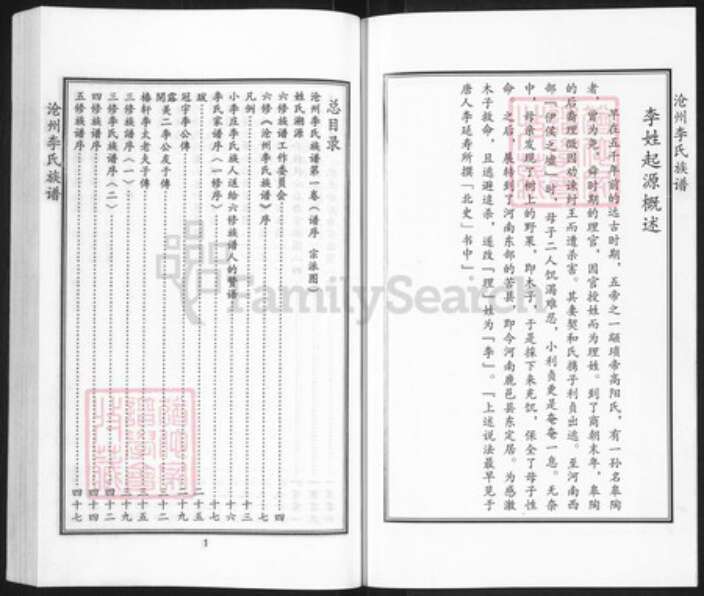 沧州李氏族谱
李姓起源概述
早在五千年前的远古时期，五帝之一颛顼帝高阳氏，有一孙名皋陶
者，曾为尧、舜时期的理官，因官授姓而为理姓。到了商朝末年，皋陶
的后裔理微因劝谏纣王而遭杀害。其妻契和氏携子利贞出逃。至河南西
部「伊侯之墟」时，母子二人饥渴难忍，小利贞更是奄奄一息。无奈
中，母亲发现了树上的野果，即木子，于是採下来充饥，保全了母子性
命。之后，展转到了河南东部的苦县，即今河南鹿邑县东定居。为感激
木子救命，且逃避追杀，遂改「理」姓为「李」。「上述说法最早见于
唐人李延寿所撰「北史」书中」。
总目录
沧州李氏族谱第一卷（谱序 宗派图）
姓氏溯源
六修族谱工作委员会 四
六修《沧州李氏族谱》序 七
凡例 十三
小李庄李氏族人送给六修族谱人的赞语 十六
李氏家谱序（一修序） 十七
跋 二十五
冠宇李公傳 二十九
露美二李公友于傳 三十二
椿轩李太老夫子傳 三十五
三修族谱序（一） 三十九
三修李氏族谱序（二） 四十二
四修族谱序 四十四
五修族谱序 四十七
沧州李氏族谱
1
FamilySearch